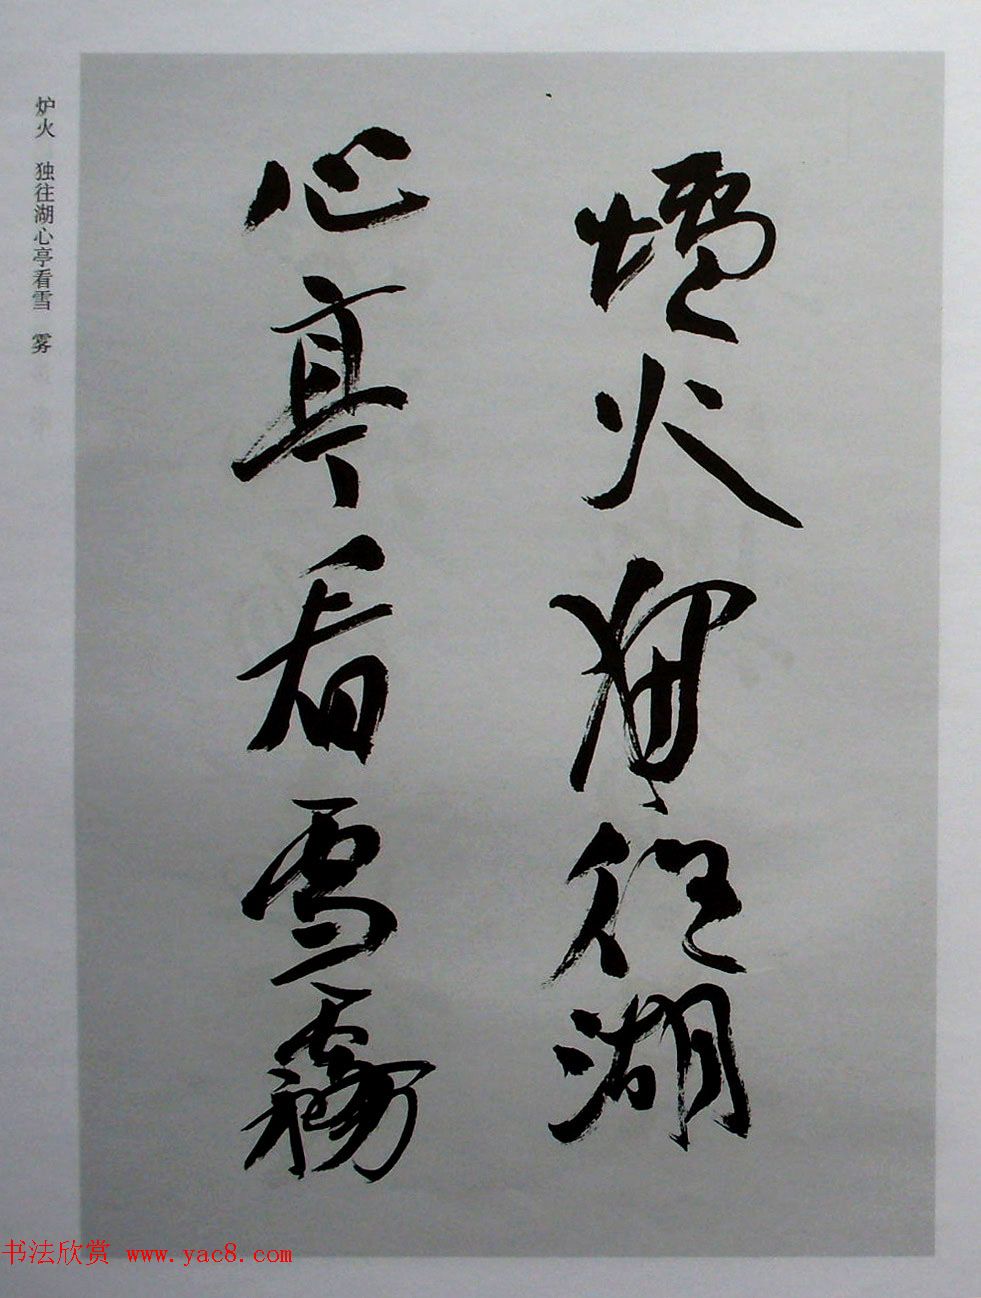 爐火獨往湖
心亭看雪霧
炉火 独往湖心亭看雪 雾
书法欣赏 www.yac8.com